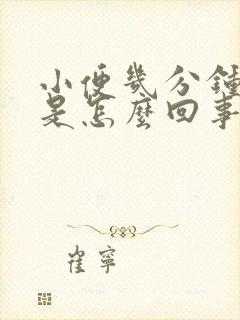 小便幾分鍾
是怎麼回事
崔寧